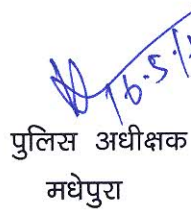 16.5.1
पुलिस अधीक्षक
मधेपुरा